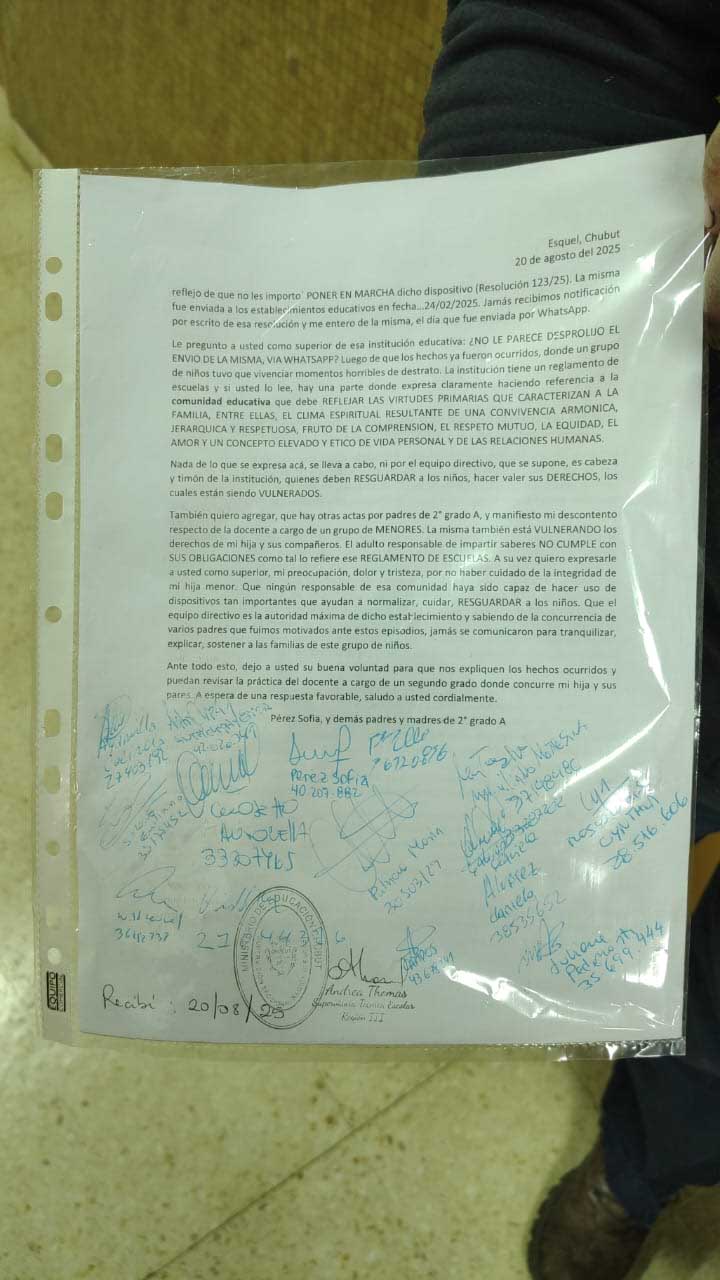 Esquel, Chubut
20 de agosto del 2025
reflejo de que no les importo PONER EN MARCHA dicho dispositivo (Resolución 123/25). La misma
fue enviada a los establecimientos educativos en fecha...24/02/2025. Jamás recibimos notificación
por escrito de esa resolución y me entero de la misma, el día que fue enviada por WhatsApp.
Le pregunto a usted como superior de esa institución educativa: ¿NO LE PARECE DESPROLIJO EL
ENVIO DE LA MISMA, VIA WHATSAPP? Luego de que los hechos ya fueron ocurridos, donde un grupo
de niños tuvo que vivenciar momentos horribles de destrato. La institución tiene un reglamento de
escuelas y si usted lo lee, hay una parte donde expresa claramente haciendo referencia a la
comunidad educativa que debe REFLEJAR LAS VIRTUDES PRIMARIAS QUE CARACTERIZAN A LA
FAMILIA, ENTRE ELLAS, EL CLIMA ESPIRITUAL RESULTANTE DE UNA CONVIVENCIA ARMONICA,
JERARQUICA Y RESPETUOSA, FRUTO DE LA COMPRENSION, EL RESPETO MUTUO, LA EQUIDAD, EL
AMOR Y UN CONCEPTO ELEVADO Y ETICO DE VIDA PERSONAL Y DE LAS RELACIONES HUMANAS.
Nada de lo que se expresa acá, se lleva a cabo, ni por el equipo directivo, que se supone, es cabeza
y timón de la institución, quienes deben RESGUARDAR a los niños, hacer valer sus DERECHOS, los
cuales están siendo VULNERADOS.
También quiero agregar, que hay otras actas por padres de 2° grado A, y manifiesto mi descontento
respecto de la docente a cargo de un grupo de MENORES. La misma también está VULNERANDO los
derechos de mi hija y sus compañeros. El adulto responsable de impartir saberes NO CUMPLE con
SUS OBLIGACIONES como tal lo refiere ese REGLAMENTO DE ESCUELAS. A su vez quiero expresarle
a usted como superior, mi preocupación, dolor y tristeza, por no haber cuidado de la integridad de
mi hija menor. Que ningún responsable de esa comunidad haya sido capaz de hacer uso de
dispositivos tan importantes que ayudan a normalizar, cuidar, RESGUARDAR a los niños. Que el
equipo directivo es la autoridad máxima de dicho establecimiento y sabiendo de la concurrencia de
varios padres que fuimos motivados ante estos episodios, jamás se comunicaron para tranquilizar,
explicar, sostener a las familias de este grupo de niños.
Ante todo esto, dejo a usted su buena voluntad para que nos expliquen los hechos ocurridos y
puedan revisar la práctica del docente a cargo de un segundo grado donde concurre mi hija y sus
pares. A espera de una respuesta favorable, saludo a usted cordialmente.
Pérez Sofia, y demás padres y madres de 2° grado A
Perez Sofia
40.207.882
33207965
30503127
Alvarez
daniela
38535652
CYNTHIA
38.516.606
Juliana
35.699.444
MINISTERIO DE EDUCACIÓN
Recibí: 20/08/25
Andrea Thomas
Supervisora Técnica Escolar
Región III
EQUIPO